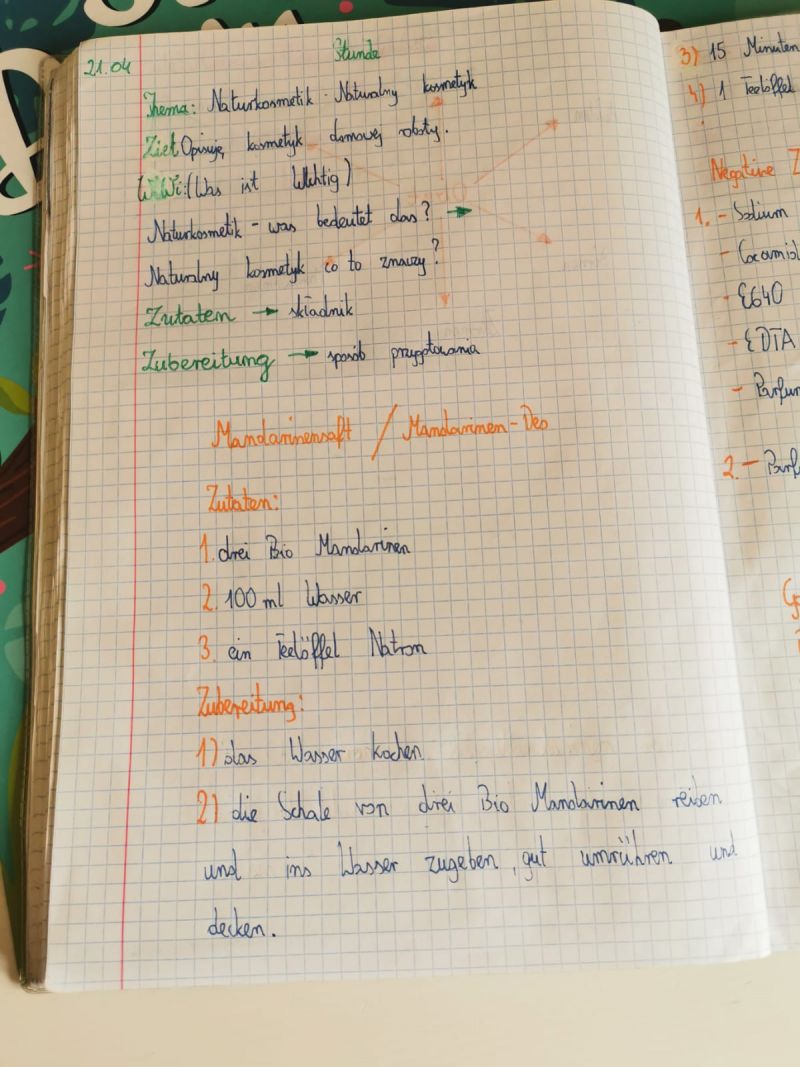 21.04
Stunde
Thema: Naturkosmetik - Naturalny kosmetyk
Ziel: Opisuję kosmetyk domowej roboty.
WiWi: (Was ist Wichtig)
Naturkosmetik - was bedeutet das? →
Naturalny kosmetyk co to znaczy?
Zutaten → składnik
Zubereitung → sposób przygotowania
Mandarinensaft / Mandarinen-Deo
Zutaten:
1. drei Bio Mandarinen
2. 100 ml Wasser
3. ein Teelöffel Natron
Zubereitung:
1) das Wasser kochen
2) die Schale von drei Bio Mandarinen reiben
und ins Wasser zugeben, gut umrühren und
decken.
3) 15 Minuten
4) 1 Teelöffel
Negative Z
1. - Sodium
- Cocamid
- E640
- EDTA
- Parfum
2. - Parf